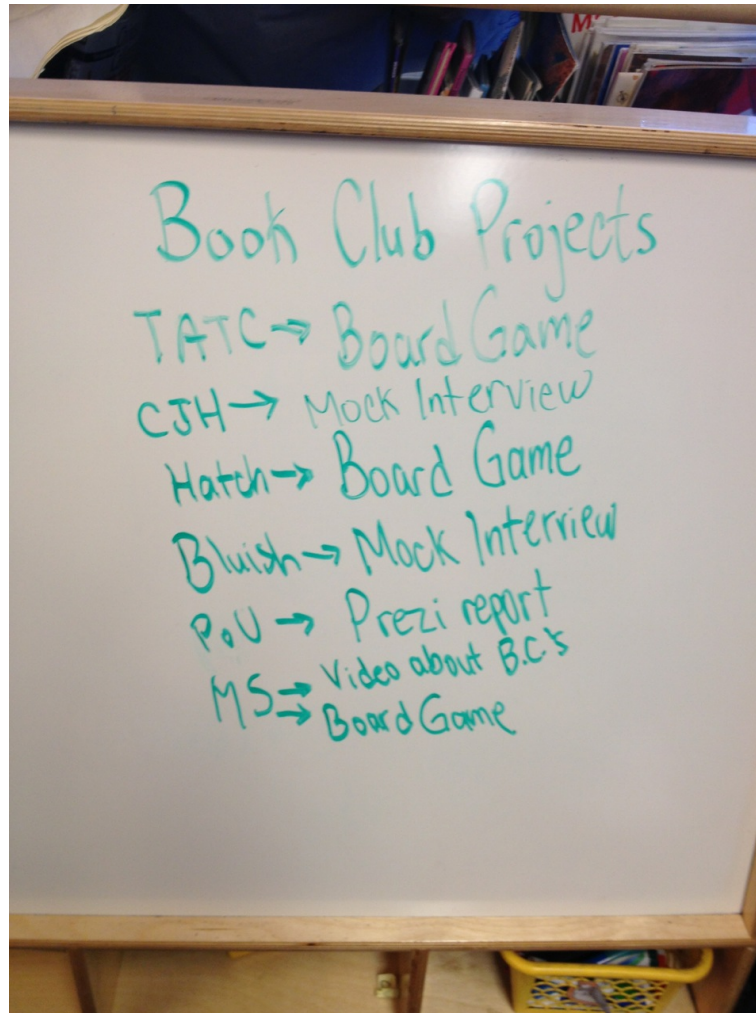 Book Club Projects
TATC → Board Game
CJH → Mock Interview
Hatch → Board Game
Bluish → Mock Interview
PoU → Prezi report
MS → Video about B.C.'s
→ Board Game